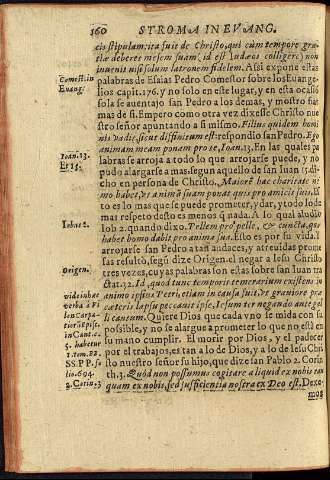 360 STROMA IN EVANG.
cis stipulam: ita fuit de Christo, qui cùm tempore gra-
tiæ deberet messem suam, id est Iudæos colligere, non
inuenit nisi solum latronem fidelem. Assi expone estas
Comest. in
Euang.
palabras de Esaias Pedro Comestor sobre los Euange-
lios capit. 176. y no solo en este lugar, y en esta ocasiõ
sola se auentajo san Pedro a los demas, y mostro fiar
mas de si. Empero como otra vez dixesse Christo nue
stro señor apuntando a si mismo. Filius quidem homi
nis vadit, sicut diffinitum est: respondio san Pedro. Ego
Ioan. 13.
Et 15.
animam meam ponam pro te, Ioan. 13. En las quales pa
labras se arroja a todo lo que arrojarse puede, y no
pudo alargarse a mas, segun aquello de san Iuan 15. di
cho en persona de Christo. Maiorẽ hac charitatẽ ne
mo habet, vt animã suam ponat quis pro amicis suis. Es
to es lo mas que se puede prometer, y dar, y todo lo de
mas respeto desto es menos q̃ nada. A lo qual aludio
Iob. 2.
Iob 2. quando dixo. Pellem pro pelle, & cuncta, quæ
habet homo dabit pro anima sua. Esto es por su vida. El
arrojarse san Pedro a tan audaces, y atreuidas prome
Origen.
sas resultò, segũ dize Origen. el negar a Iesu Christo
tres vezes, cuyas palabras son estas sobre san Iuan tra
ctat. 32. Id, quod tunc temporis temerarium existens in
vide in hæc
verba à Vi
len Carpa-
animo ipsius Petri, etiam in causa fuit. De grauiore præ
cæteris lapsu peccauit ipse, Iesum ter negando ante gal
li cantum. Quiere Dios que cada vno se mida con su
in Cant. c.
5. habetur
1. tom. BB.
SS. PP. fo
lio. 694.
possible, y no se alargue a prometer lo que no està en
su mano cumplir. El morir por Dios, y el padecer
por el trabajos, es tan a lo de Dios, y a lo de Iesu Chri
sto nuestro señor su hijo, que dize san Pablo 2. Corin
2. Corin. 3
th. 3. Quòd non possumus cogitare aliquid ex nobis tan
quam ex nobis, sed sufficientia nostra ex Deo est. Dexe-
mos